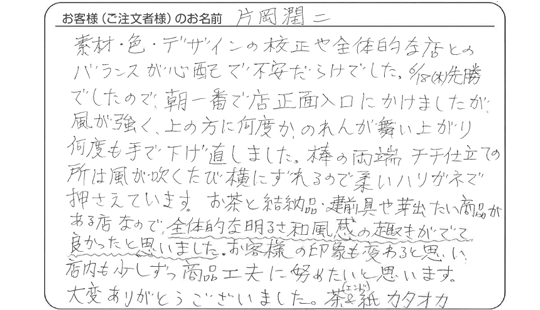 お客様(ご注文者様)のお名前 片岡潤二
素材・色・デザインの校正や全体的な店との
バランスが心配で不安だらけでした。6/18(木)先勝
でしたので、朝一番で店正面入口にかけましたが、
風が強く、上の方に何度か、のれんが舞い上がり
何度も手で下げ直しました。棒の両端 チチ仕立ての
所は風が吹くたび横にずれるので柔いハリガネで
押さえています。お茶と結納品・建前具や芽出たい商品が
ある店なので、全体的な明るさ和風感の趣きがでて
良かったと思いました。お客様の印象も変わると思い、
店内も少しずつ商品工夫に努めたいと思います。
大変ありがとうございました。茶&紙 カタオカ